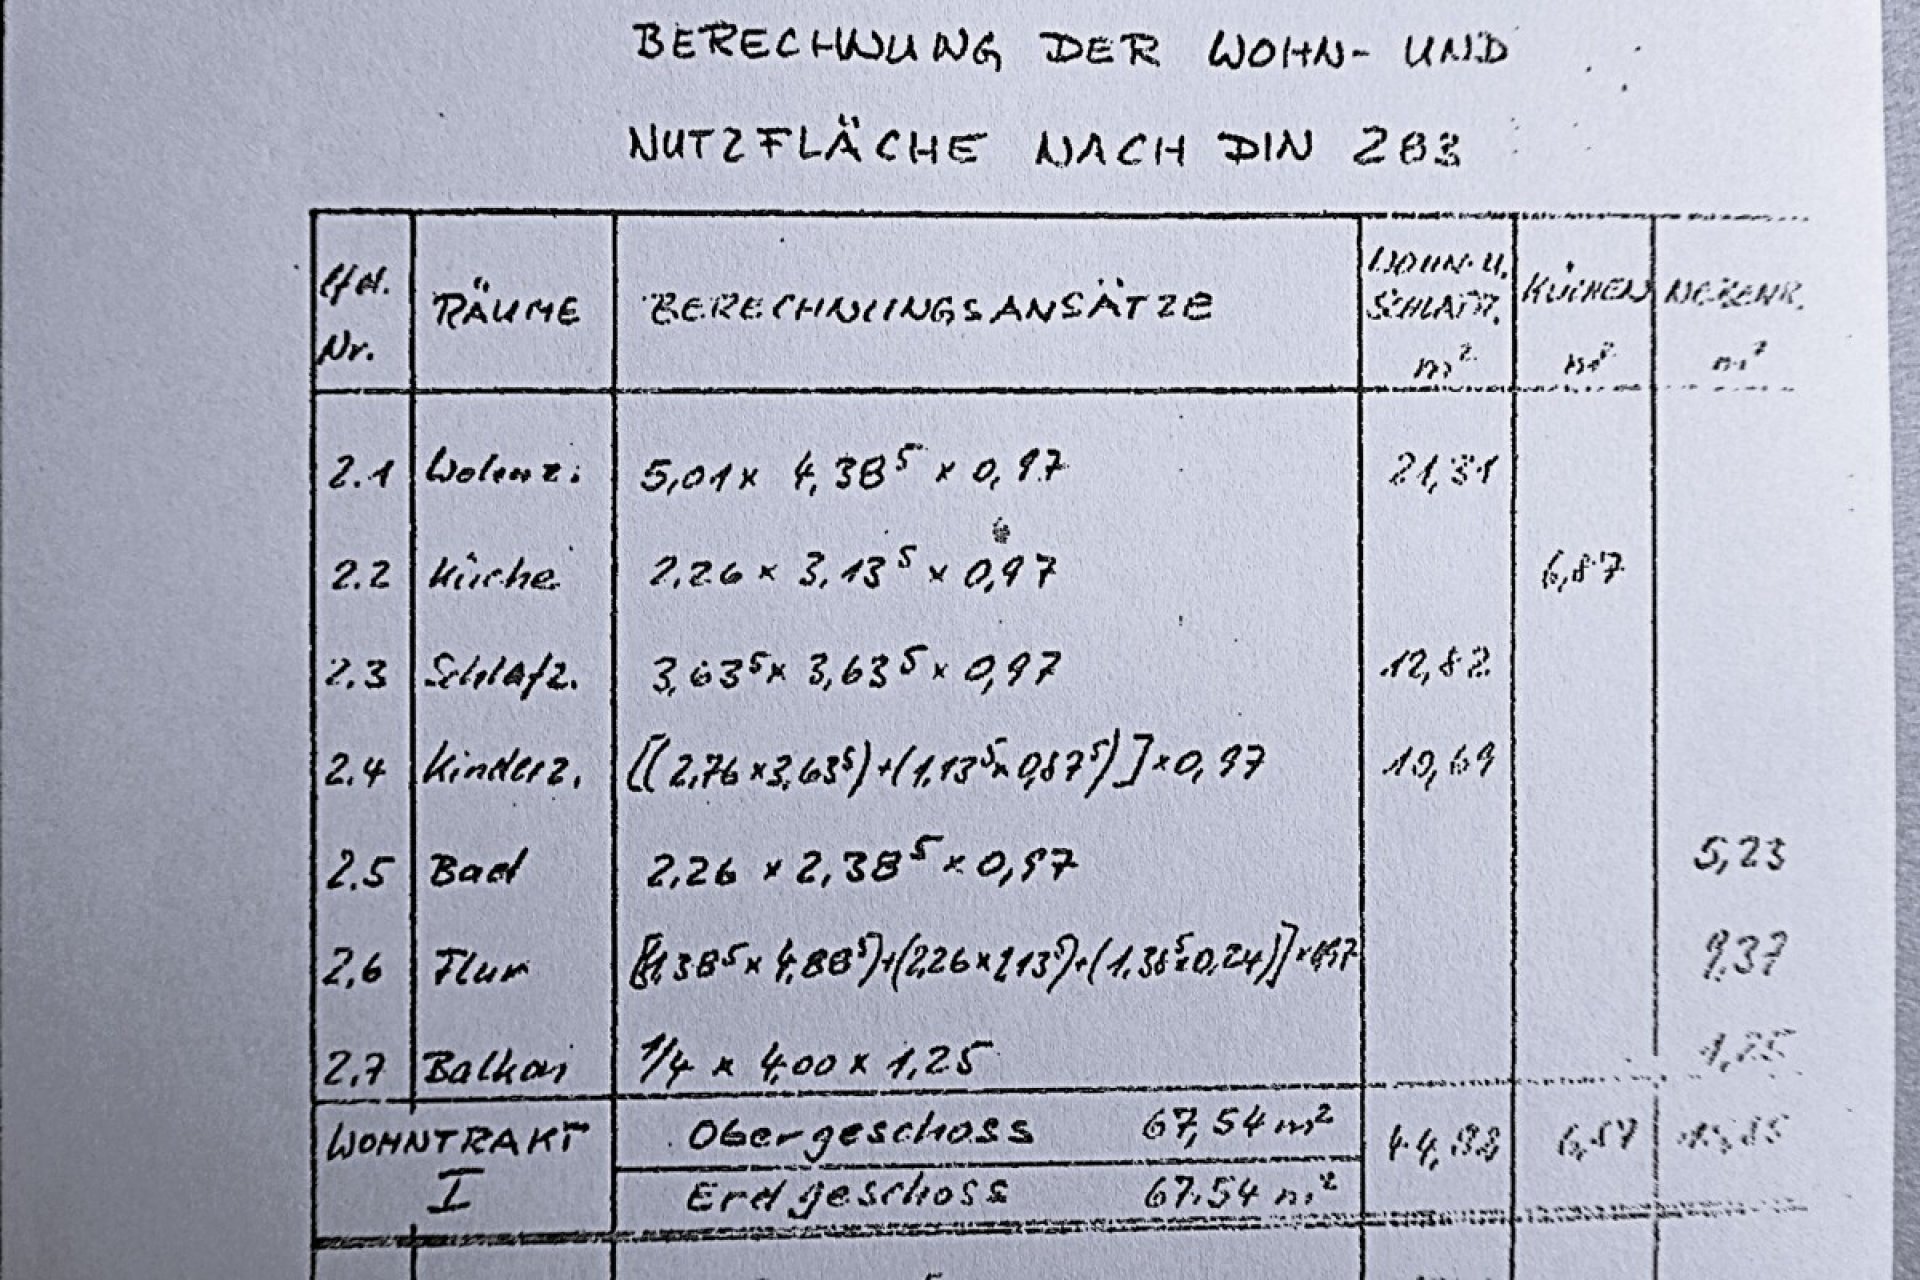 BERECHNUNG DER WOHN- UND
NUTZFLÄCHE NACH DIN 283
lfd. Nr. RÄUME BERECHNUNGSANSÄTZE WOHN- U. SCHLAFR. m² KÜCHEN m² NEBENR. m²
2.1 Wohnz. 5,01 x 4,38⁵ x 0,97 21,31
2.2 Küche 2,26 x 3,13⁵ x 0,97 6,87
2.3 Schlafz. 3,63⁵ x 3,63⁵ x 0,97 12,82
2.4 Kinderz. [(2,76 x 3,63⁵) + (1,13⁵ x 0,87⁵)] x 0,97 10,69
2.5 Bad 2,26 x 2,38⁵ x 0,97 5,23
2.6 Flur [(1,38⁵ x 4,88⁵) + (2,26 x 1,13⁵) + (1,38⁵ x 0,24)] x 0,97 9,37
2.7 Balkon 1/4 x 4,00 x 1,25 1,25
WOHNTRAKT I Obergeschoss 67,54 m² 44,82 6,87
Erdgeschoss 67.54 m²